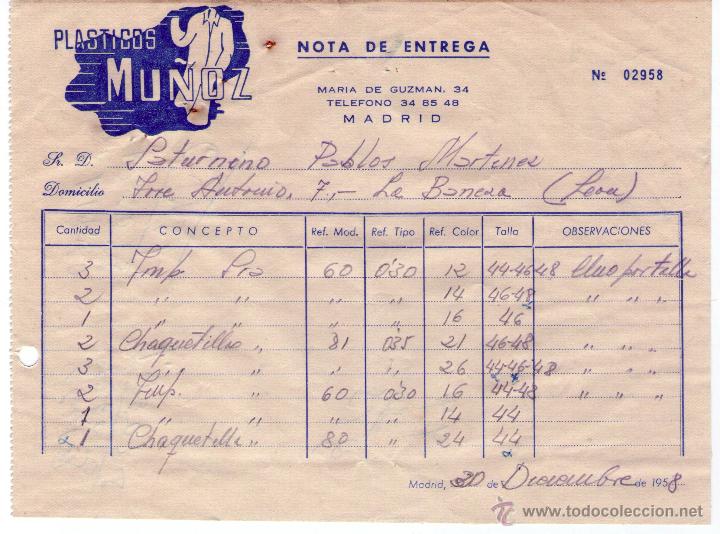 PLASTICOS
MUÑOZ
NOTA DE ENTREGA
Nº 02958
MARIA DE GUZMAN, 34
TELEFONO 34 85 48
MADRID
Sr. D. Saturnino Pablos Martinez
Domicilio Jose Antonio, 7,- La Baneza (Leon)
Cantidad CONCEPTO Ref. Mod. Ref. Tipo Ref. Color Talla OBSERVACIONES
3 Imp. Sra 60 0'30 12 44-46-48 Uno por talla
2 " " " " 14 46-48 " " "
1 " " " " 16 46
2 Chaquetillas " 81 035 21 46-48 " " "
3 " " " " 26 44-46-48 " " "
2 Imp. " 60 0'30 16 44-48 " " "
1 " " " " 14 44
1 Chaquetilla " 80 " 24 44
Madrid, 20 de Diciembre de 1958
todocoleccion.net